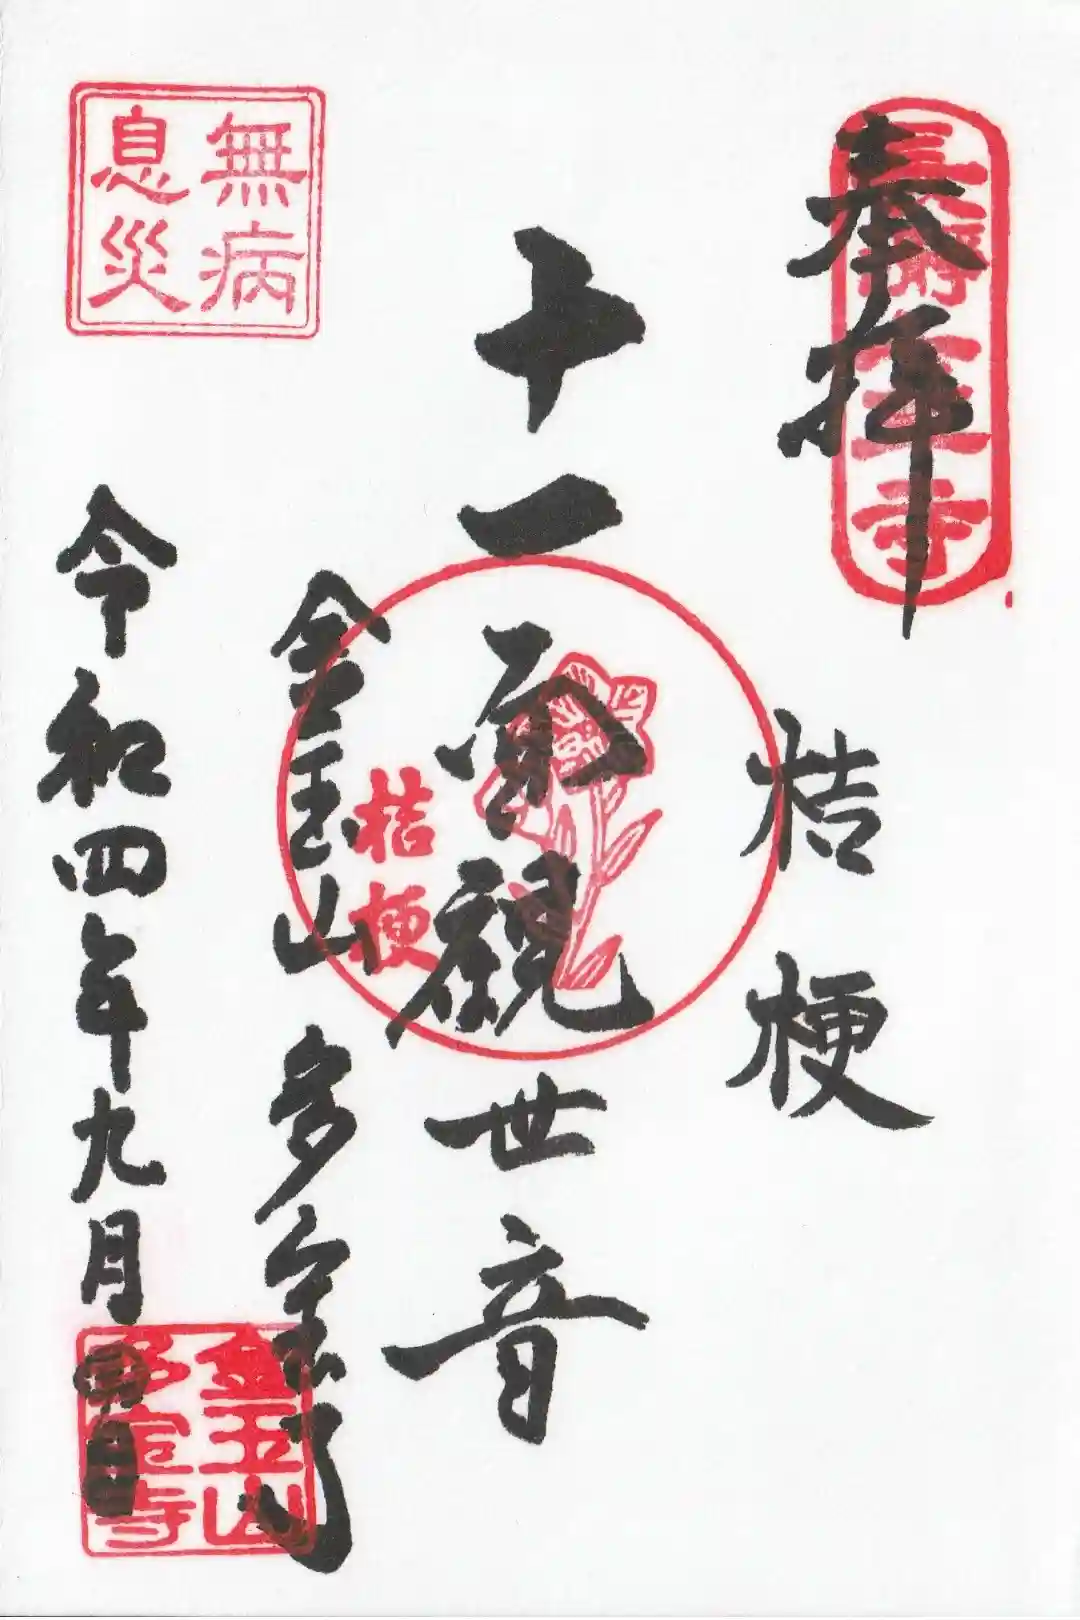 奉拝
桔梗
十一面観世音
桔梗
金玉山 多宝寺
令和四年九月
無病
息災
金玉山
多宝寺